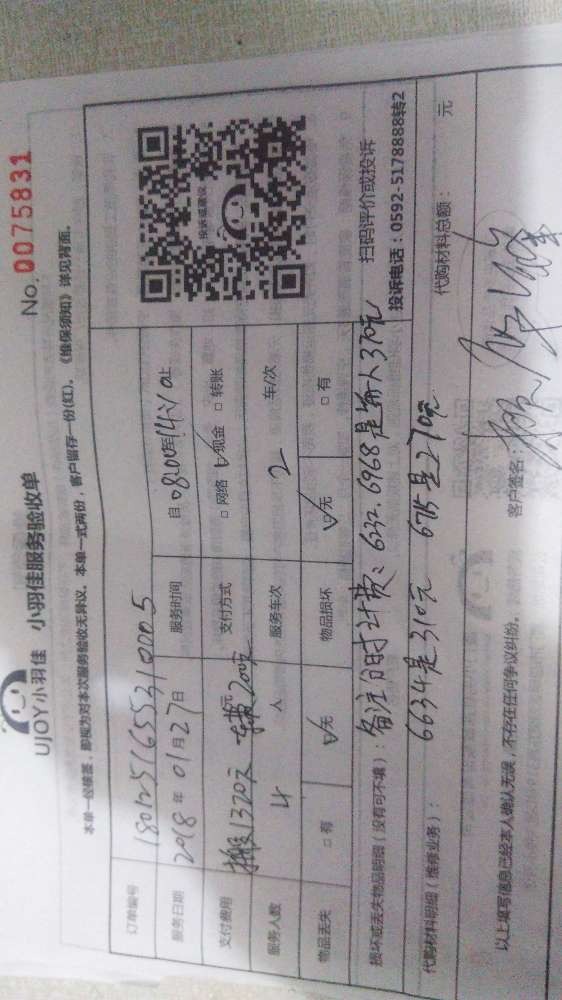 UJOY小羽佳 小羽佳服务验收单
No. 0075831
本单一经核签，即视为对本次服务验收无异议。本单一式两份，客户留存一份(红)。《维保须知》详见背面。
订单编号 1801251655310005
服务日期 2018年01月27日 服务时间 自08:00至14:10止
支付费用 搬1320元 车200元 支付方式 □网络 ☑现金 □转账
服务人数 4 人 服务车次 2 车/次
物品丢失 □有 ☑无 物品损坏 ☑无 □有
投诉或建议
扫码评价或投诉
投诉电话：0592-5178888转2
损坏或丢失物品明细（没有可不填）：备注：时计费：6232.6968是每人370元
6634是310元 6715是270元
代购材料明细（维修业务）： 代购材料总额： 元
以上填写信息已经本人确认无误，不存在任何争议纠纷。 客户签名：